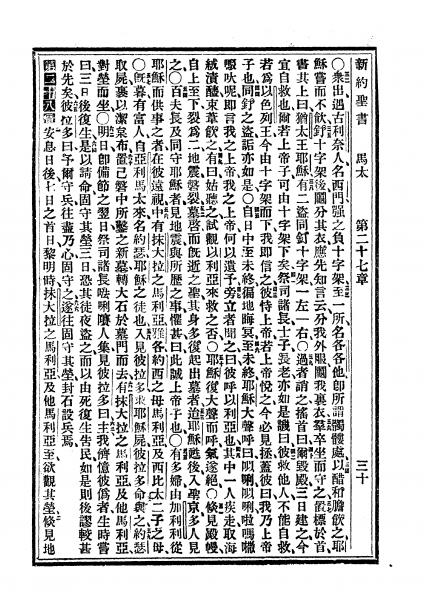 新約聖書 馬太 第二十七章 三十
○衆出遇古利奈人名西門强之負十字架至一所名各各他卽所謂髑髏處以醋和膽飲之耶
穌嘗而不飲釘十字架後鬮分其衣應先知言云分我外服鬮我裏衣羣卒坐而守之置標於首
書其上曰猶太王耶穌有二盜同釘十字架一左一右○過者誚之搖首曰爾毀殿三日建之今
宜自救也爾若上帝子可由十字架下矣祭司諸長士子長老亦如是譏曰彼救他人不能自救
若爲以色列王今由十字架而下我卽信之彼恃上帝若上帝悅之今必見拯蓋彼曰我乃上帝
子也同釘之盜詬亦如是○自日中至未終徧地晦冥至未終耶穌大聲呼曰以唎以唎啦嗎
呋呢卽言我之上帝我之上帝何以遺予旁立者聞之曰彼呼以利亞也其中一人疾走取海
絨漬醯束葦飲之有曰姑聽之試觀以利亞來救之否○耶穌復大聲而呼氣遂絕○倏見殿幔
自上至下裂爲二地震磐裂墓啓而旣逝之聖其身多復起出墓者迨耶穌甦後入聖京多人見
之○百夫長及同守耶穌者見地震與所歷之事懼甚曰此誠上帝子也○有多婦由加利利從
耶穌而供事之者在彼遠視中有抹大拉之馬利亞雅各約西之母馬利亞及西比太二子之母
○旣暮有富人自亞利馬太來名約瑟耶穌之徒也入見彼拉多求耶穌屍彼拉多命與之約瑟
取屍裹以潔枲布置己磐中所鑿之新墓轉大石於墓門而去有抹大拉之馬利亞及他馬利亞
對塋而坐○明日卽備節之翌日祭司諸長唎人集見彼拉多曰主我儕憶彼僞者生時嘗
曰三日後復生是以請命固守其塋三日恐其徒夜盜之而以由死復生告民如是則後謬較甚
於先矣彼拉多曰予爾守兵往盡乃心固守之遂往固守其塋封石設兵焉
第二十八章 安息日後七日之首日黎明時抹大拉之馬利亞及他馬利亞至欲觀其塋倏見地